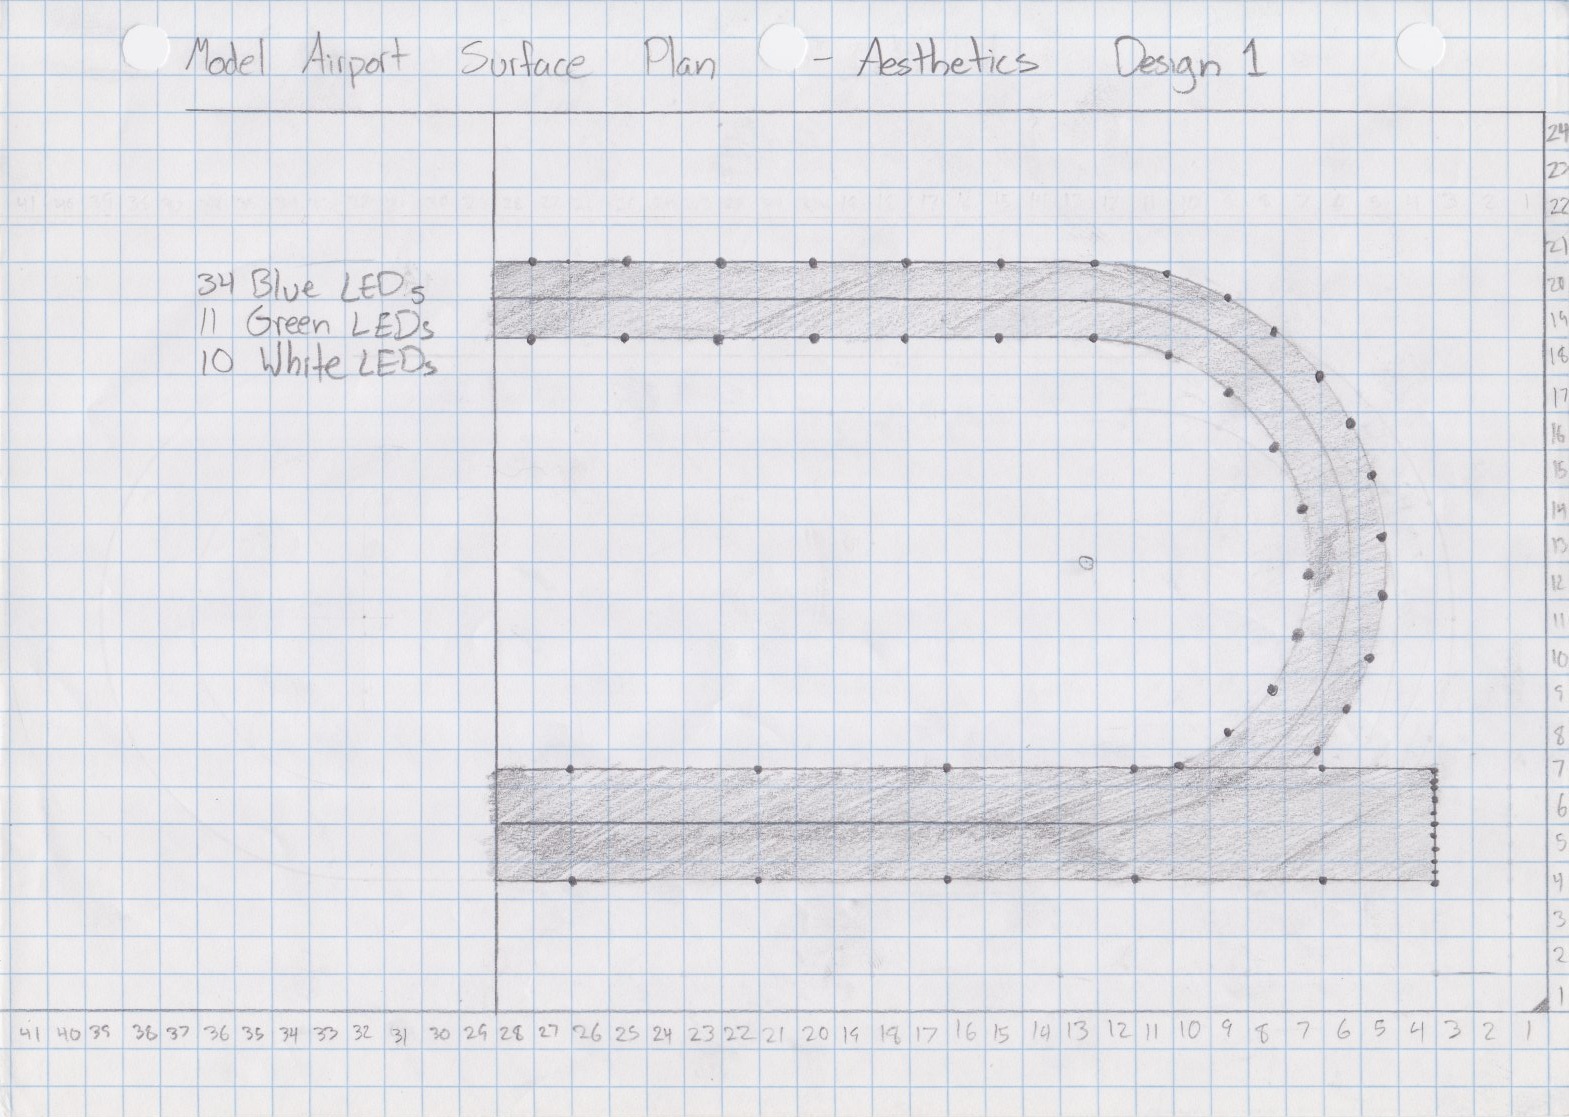 Model Airport Surface Plan - Aesthetics Design 1
34 Blue LEDs
11 Green LEDs
10 White LEDs
24
23
22
21
20
19
18
17
16
15
14
13
12
11
10
9
8
7
6
5
4
3
2
1
41 40 39 38 37 36 35 34 33 32 31 30 29 28 27 26 25 24 23 22 21 20 19 18 17 16 15 14 13 12 11 10 9 8 7 6 5 4 3 2 1